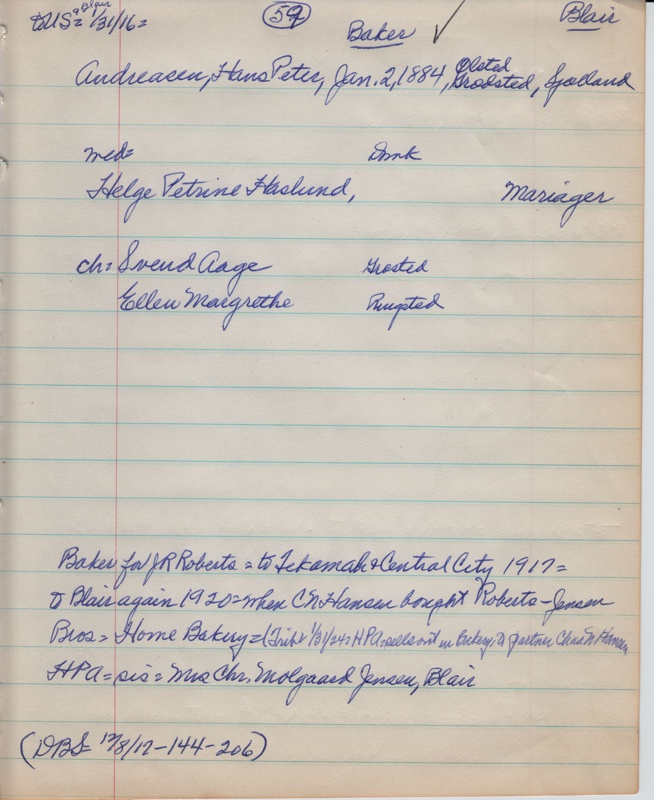 to US & Blair 1/31/16=
59
Baker ✓
Blair
Andreasen, Hans Peter, Jan. 2, 1884, Olsted
Grodsted, Sjolland
med= Dmk
Helge Petrine Haslund, Mariager
ch= Svend Aage Grosted
Ellen Margrethe Ringsted
Baker for JR Roberts = to Tekamah & Central City 1917=
to Blair again 1920=when C N Hansen bought Roberts-Jensen
Bros= Home Bakery=(Trib= 1/31/24= HPA=sells out in bakery to partner Chas N Hansen
HPA= sis= Mrs Chr. Molgaard Jensen, Blair
(DBS= 12/8/17-144-206)